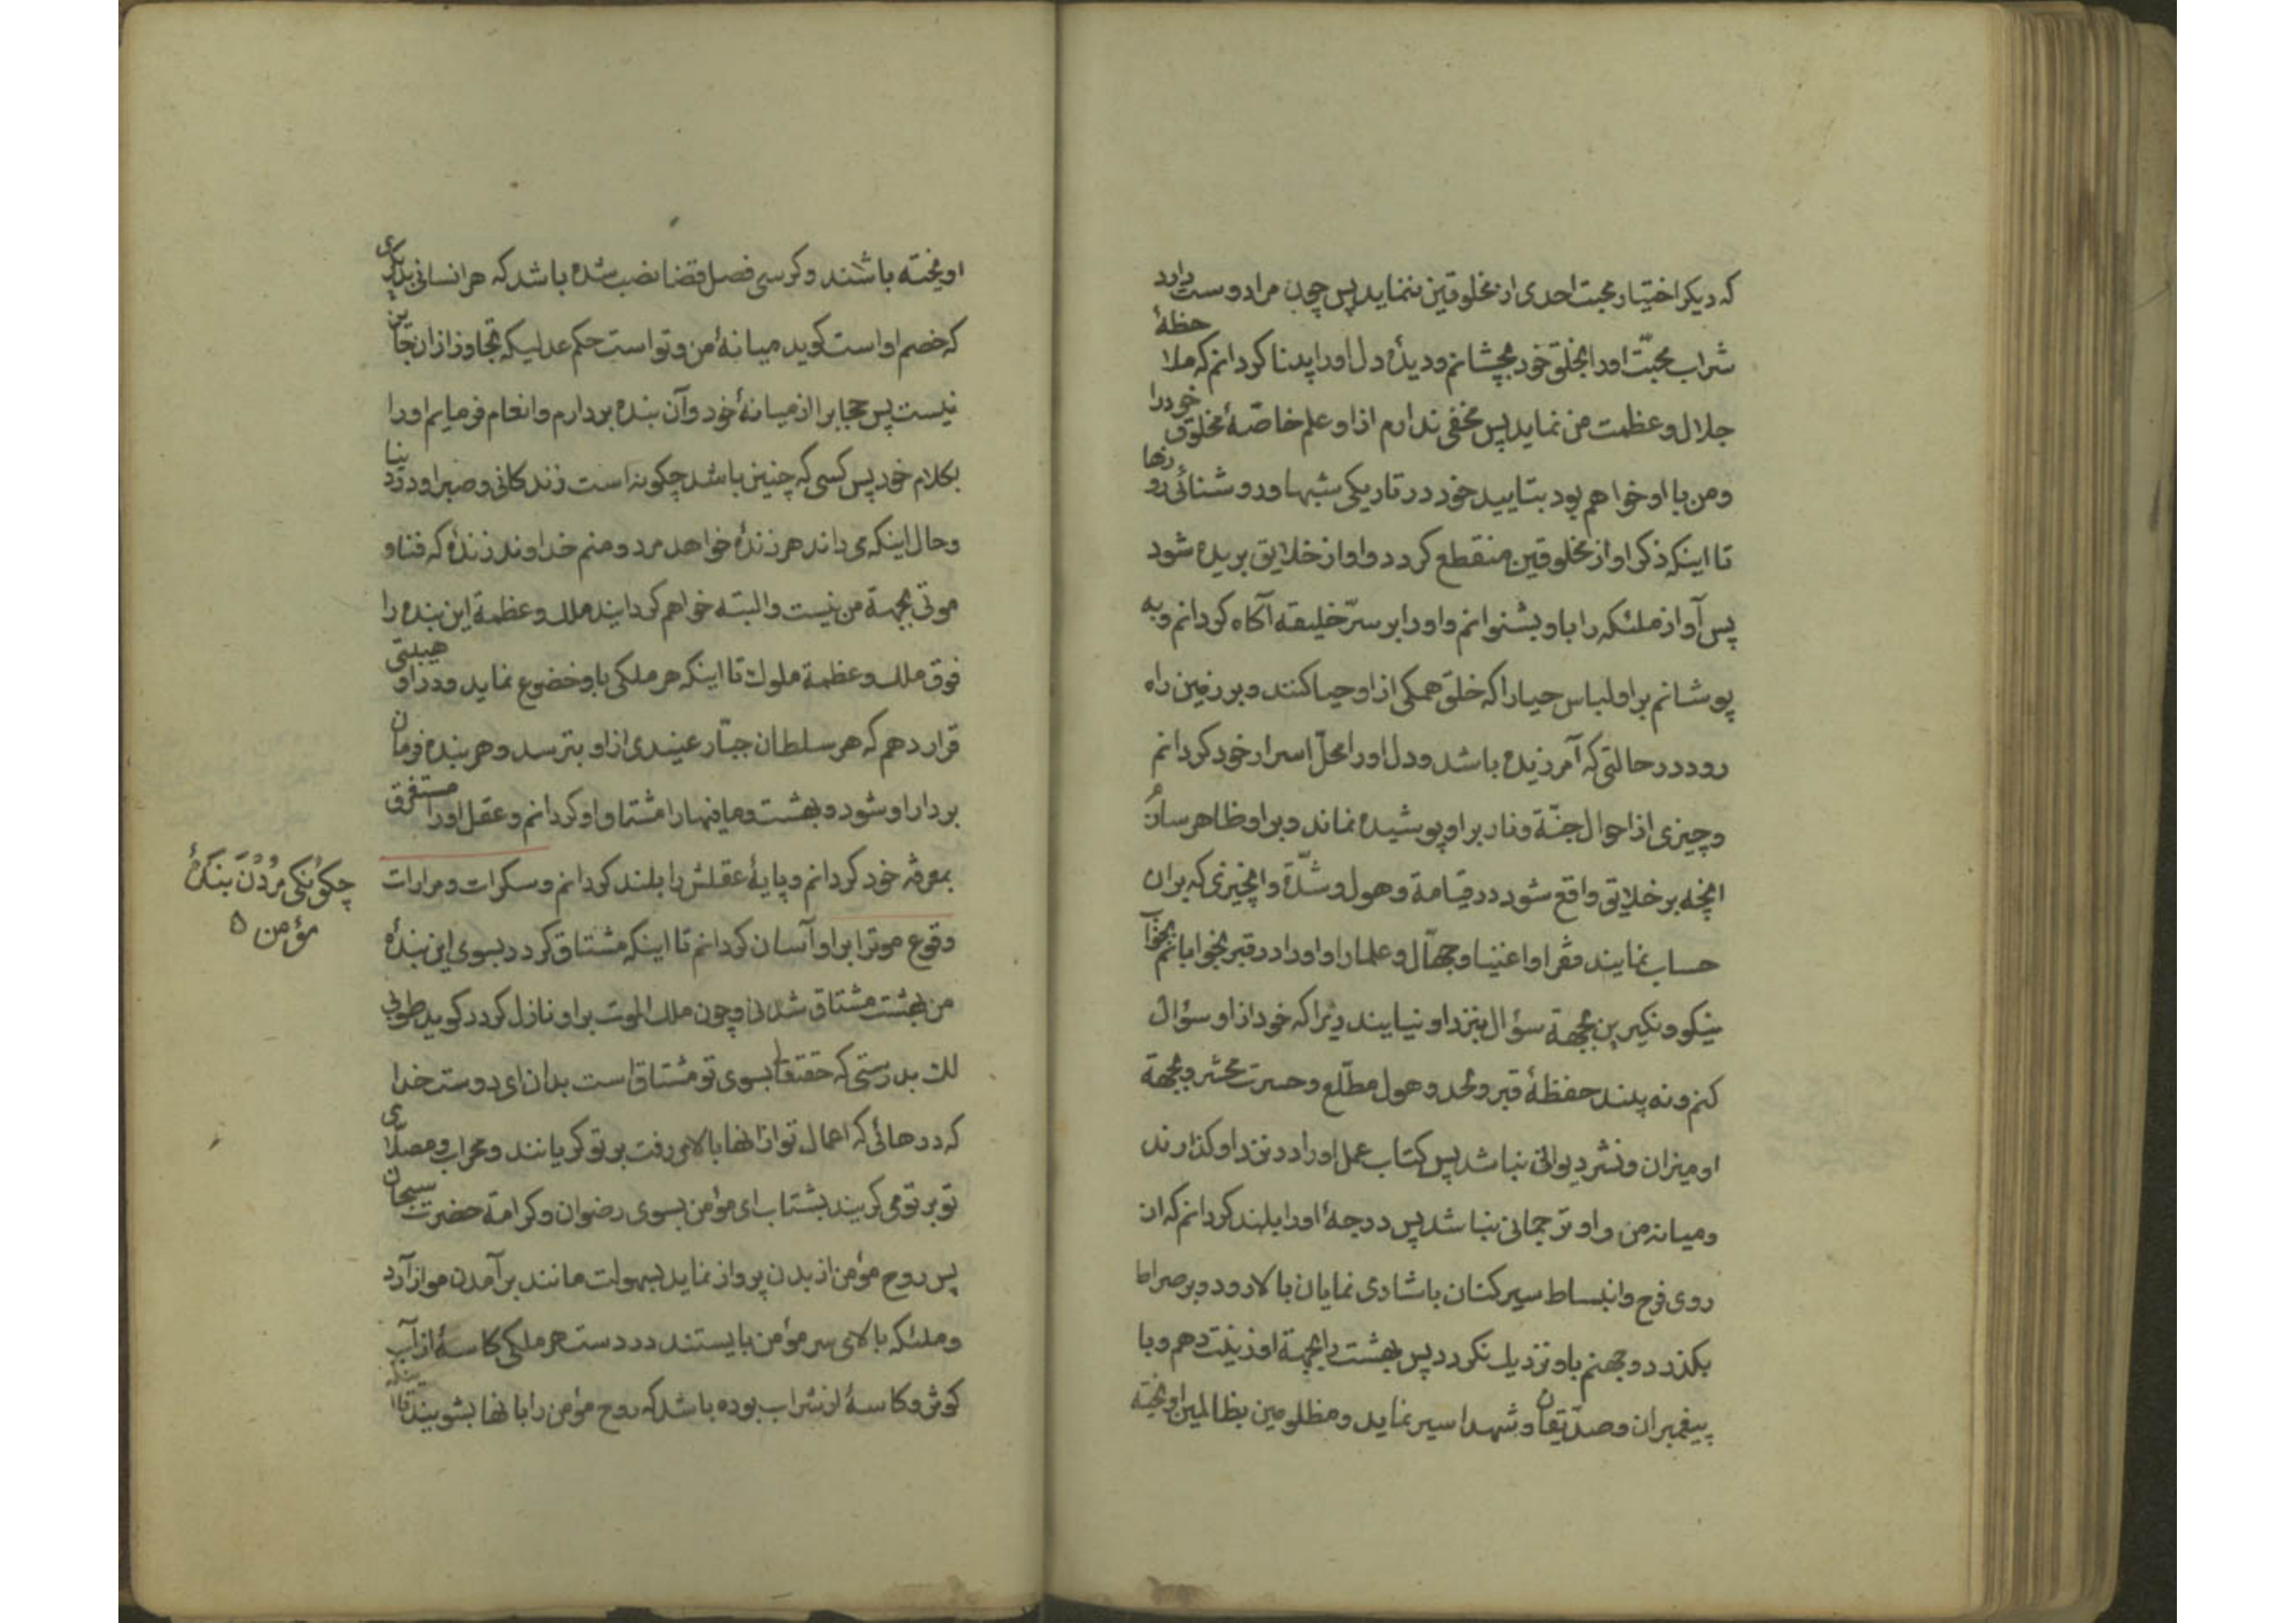 که دیکر اختیار محبت احدی از مخلوقین ننماید پس چون مرا دوست دارد
شراب محبّت اورا بخلق خود بچشانم و دیدهٔ دل اورا بینا کردانم که ملاحظهٔ
جلال و عظمت من نماید پس مخفی ندارم از او علم خاصّهٔ مخلوق خودرا
و من با او خواهم بود بتایید خود در تاریکی شبها و روشنائی روزها
تا اینکه ذکر او از مخلوقین منقطع کردد و او از خلایق بریده شود
پس آواز ملئکه را باو بشنوانم و اورا بر سرّ خلیقه آکاه کردانم و به
پوشانم بر او لباس حیا را که خلق همکی از او حیا کنند و بر زمین راه
رود در حالتی که آمرزیده باشد و دل اورا محلّ اسرار خود کردانم
و چیزی از احوال جنّة و نار بر او پوشیده نماند و بر او ظاهر سازم
انچه بر خلایق واقع شود در قیامة و هول و شدّة و انچیزی که بران
حساب نمایند فقرا و اغنیا و جهّال و علما را و اورا در قبر بخوابانم
و نکیرین بجهة سؤال بنزد او نیایند زیرا که خود از او سؤال
کنم و نه بیند حفظهٔ قبر و لحد و هول مطّلع و حسرت محشر و بجهة
او میزان و نشر دیوانی نباشد پس کتاب عمل اورا در نزد او کذارند
و میانه من و او ترجمانی نباشد پس درجهٔ اورا بلند کردانم که ان
روی فرح و انبساط سیر کنان با شادی نمایان بالا رود و بر صراط
بکذرد و جهنم باو نزدیك نکردد پس بهشت را بجهة او زینت دهم و با
پیغمبران و صدّیقان و شهدا سیر نماید و مظلومین بظالمین اویخته
اویخته باشند و کرسی فصل قضا نصب شده باشد که هر انسانی بدیکری
که خصم او است کوید میانهٔ من و تو است حکم عدلیکه تجاوز از ان
نیست پس حجابرا از میانهٔ خود و آن بنده بردارم و انعام فرمایم اورا
بکلام خود پس کسی که چنین باشد چکونه است زندکانی و صبر او در دنیا
و حال اینکه می داند هر زندهٔ خواهد مرد و منم خداوند زندهٔ که فنا و
موتی بجهة من نیست و البته خواهم کردایند ملك و عظمة این بنده را
فوق ملك و عظمة ملوك تا اینکه هر ملکی باو خضوع نماید و در او هیبتی
قرار دهم که هر سلطان جبّار عنیدی از او بترسد و هر بنده فرمان
بردار او شود و بهشت و مافیها را مشتاق او کردانم و عقل اورا مستغرق
بمعرفه خود کردانم و پایهٔ عقلش را بلند کردانم و سکرات و مرارات
وقوع موترا بر او آسان کردانم تا اینکه مشتاق کردد بسوی این بندهٔ
من بهشت مشتاق شدنی و چون ملك الموت بر او نازل کردد کوید طوبی
لك بدرستی که حقتعالی بسوی تو مشتاق است بدان ای دوست خدا
که درهائی که اعمال تو ازانها بالا می رفت بر تو کریانند و محراب و مصلّای
تو بر تو می کریند بشتاب ای مؤمن بسوی رضوان و کرامة حضرت سبحان
پس روح مؤمن از بدن پرواز نماید بسهولت مانند برآمدن مو از آرد
و ملئکه بالای سر مؤمن بایستند در دست هر ملکی کاسهٔ از آب
کوثر و کاسهٔ از شراب بوده باشد که روح مؤمن را بانها بشویند تا اینکه
چکونکی مردن بندهٔ
مؤمن